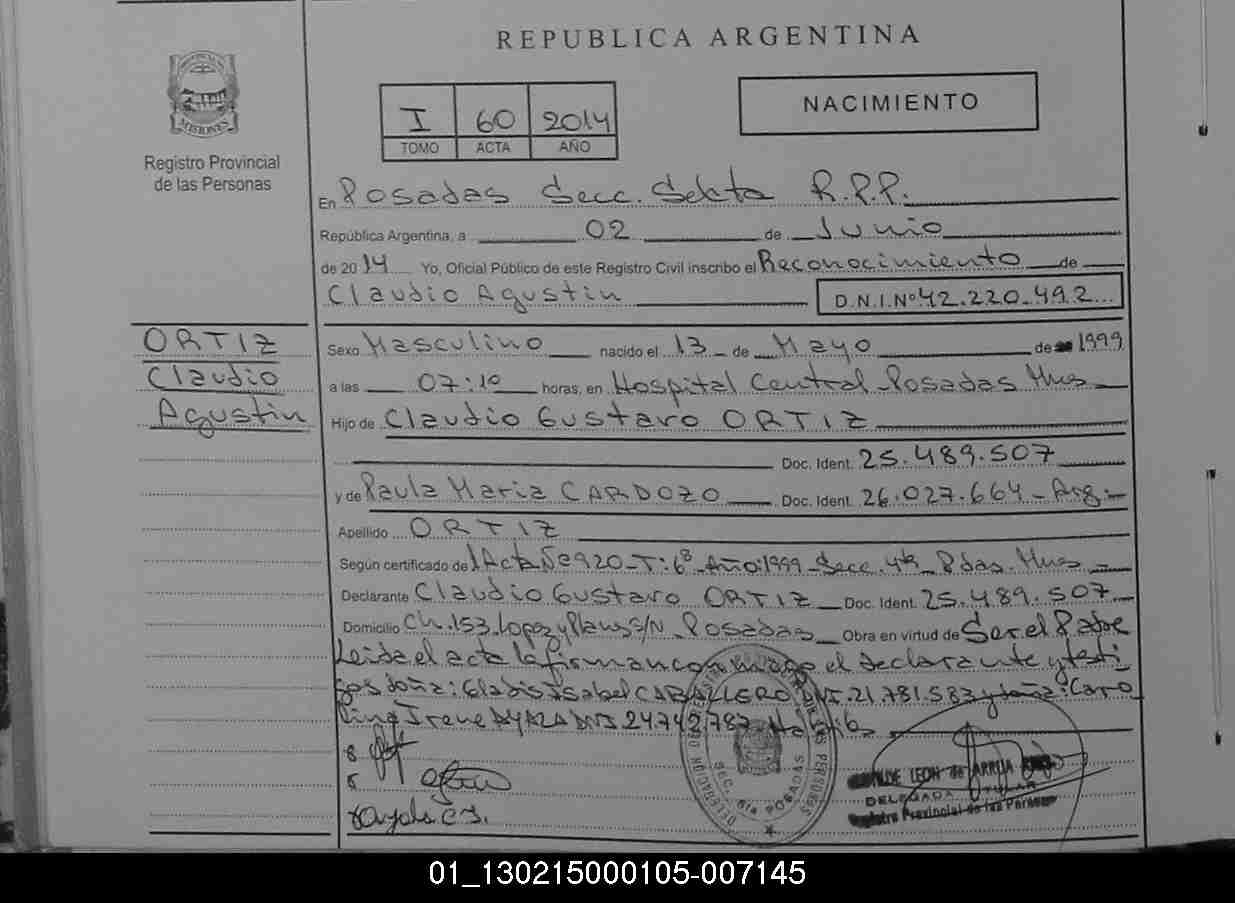 REPUBLICA ARGENTINA
MISIONES
Registro Provincial
de las Personas
I 60 2014
TOMO ACTA AÑO
NACIMIENTO
En Posadas Secc. Sexta R.P.P.
República Argentina, a 02 de Junio
de 2014 Yo, Oficial Público de este Registro Civil inscribo el Reconocimiento de
Claudio Agustin D.N.I.Nº 42.220.492
ORTIZ
Claudio
Agustin
Sexo Masculino nacido el 13 de Mayo de 1999
a las 07:10 horas, en Hospital Central Posadas Mnes
Hijo de Claudio Gustavo ORTIZ
Doc. Ident. 25.489.507
y de Paula Maria CARDOZO Doc. Ident. 26.027.664 - Arg.-
Apellido ORTIZ
Según certificado de Acta Nº 920 - T: 6º Año: 1999 Secc. 4ta Pdas. Mnes
Declarante Claudio Gustavo ORTIZ Doc. Ident. 25.489.507
Domicilio Ch. 153 Lopez y Planes S/N Posadas Obra en virtud de Ser el Padre
Leida el acta la firman conmigo el declarante y testi
gos doña: Gladis Isabel CABALLERO DNI. 21.781.583 y doña: Caro
lina Irene AYALA DNI 24.742.787
Ayala C I.
DELEGACIÓN DE LAS PERSONAS
SEC. 6ta POSADAS
LEON de ARRUA
DELEGADA TITULAR
Registro Provincial de las Personas
01_130215000105-007145